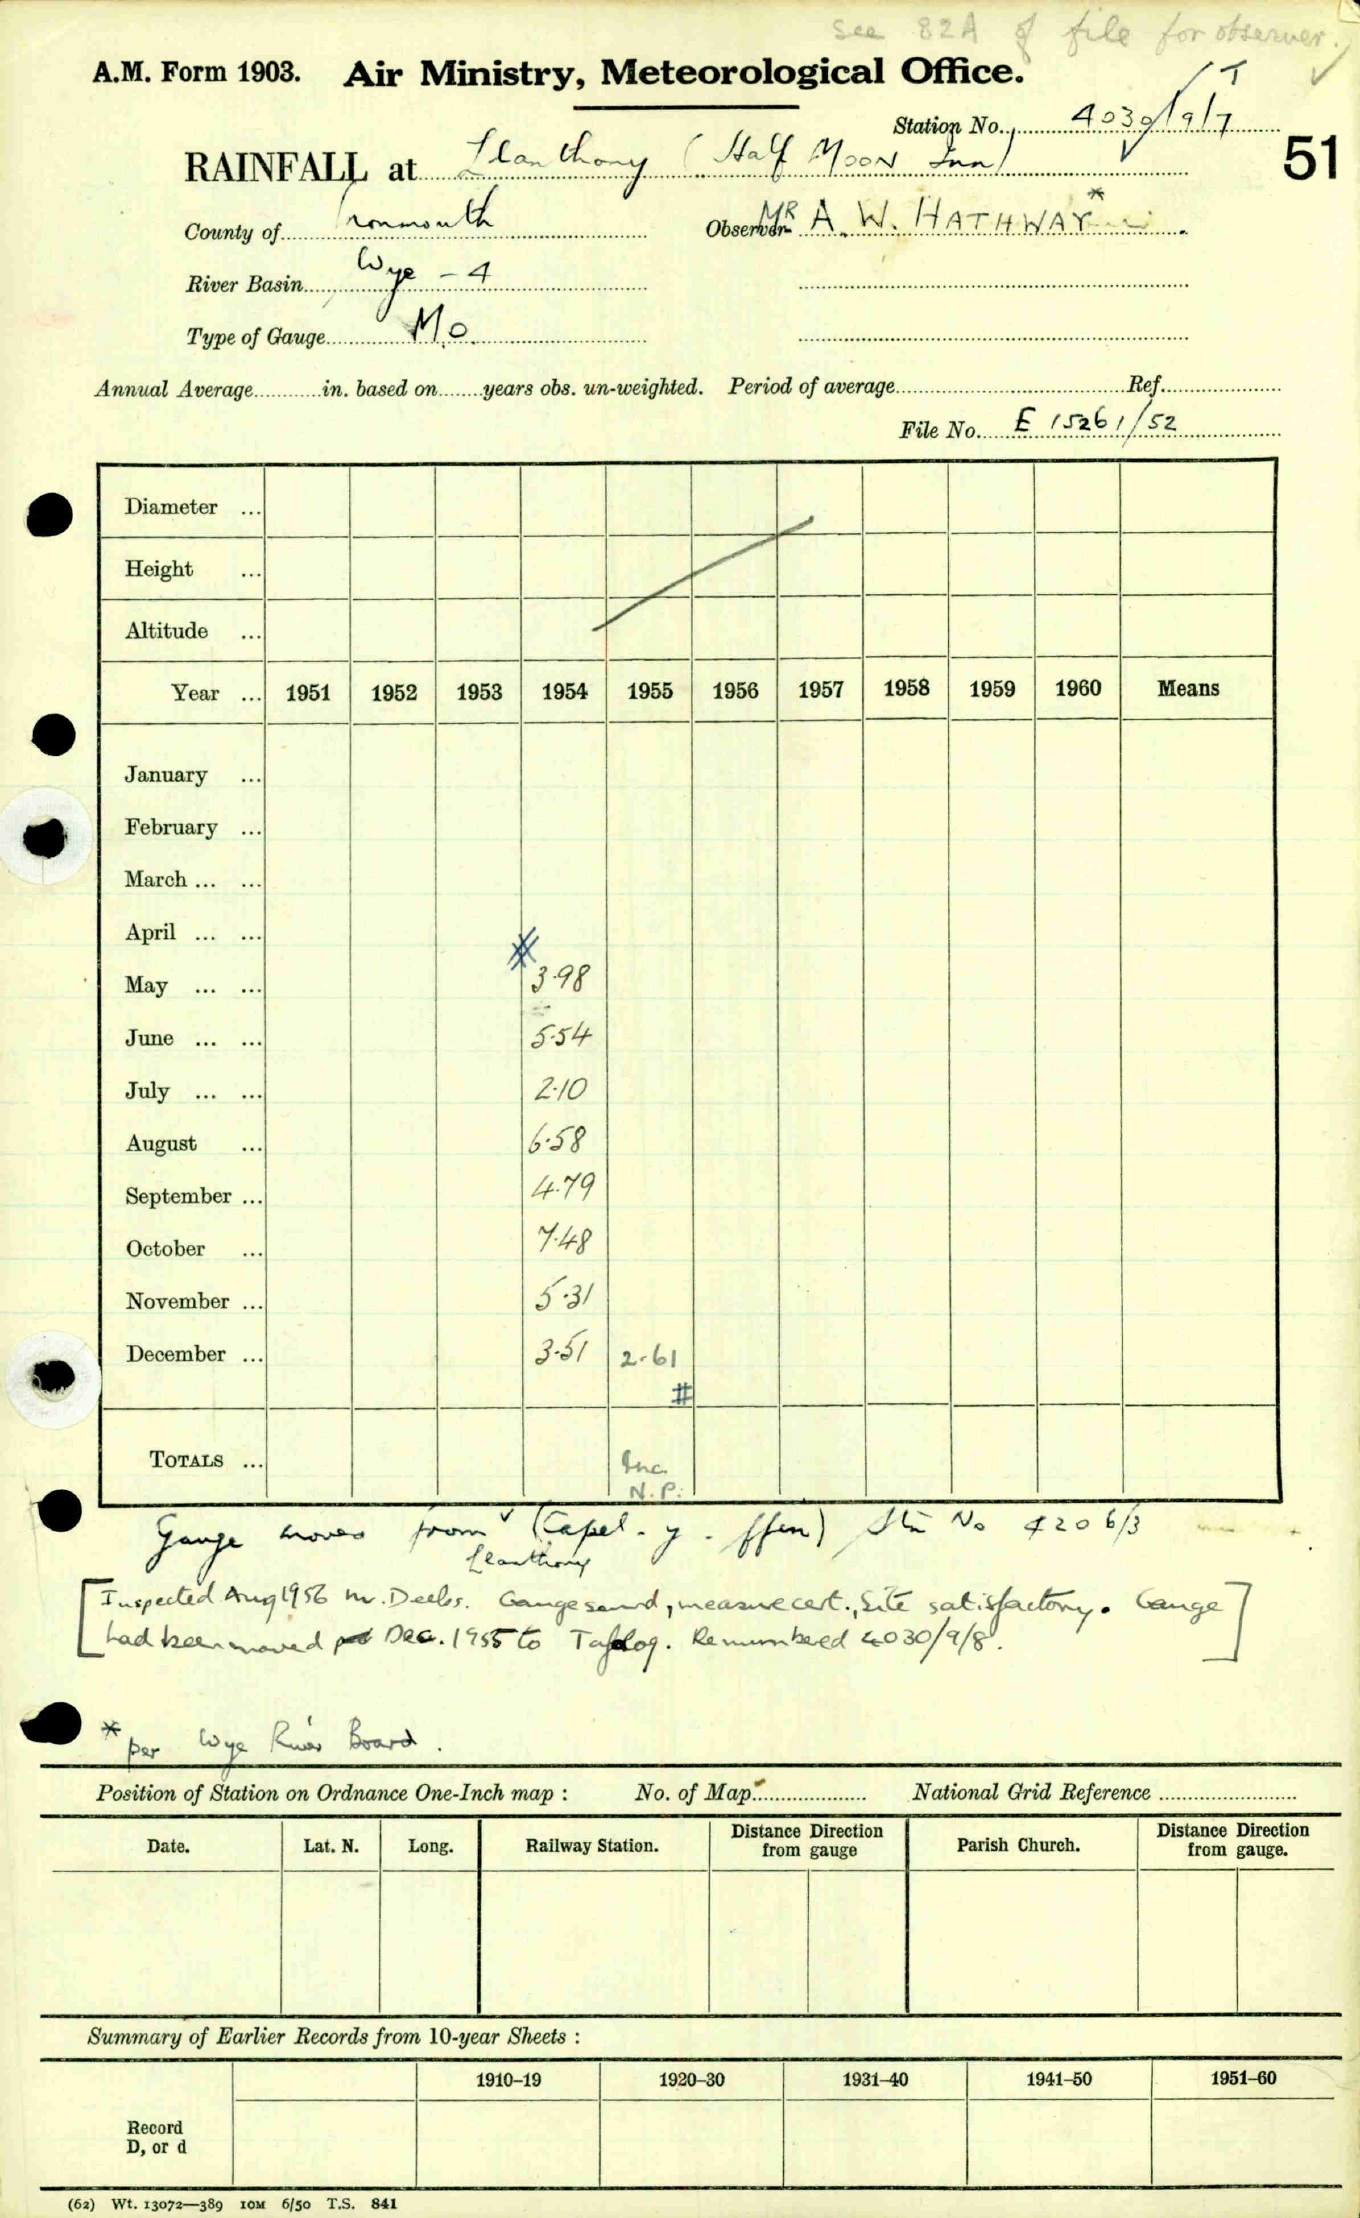 See 82A of file for observer.
A.M. Form 1903. Air Ministry, Meteorological Office.
T
Station No. 4030/9/7
51
RAINFALL at Llanthony (Half Moon Inn)
County of Monmouth
Observer MR A. W. HATHWAY *
River Basin Wye - 4
Type of Gauge M.O.
Annual Average in. based on years obs. un-weighted. Period of average Ref.
File No. E 15261/52
Diameter ...
Height ...
Altitude ...
Year ... 1951 1952 1953 1954 1955 1956 1957 1958 1959 1960 Means
January ...
February ...
March ... ...
April ... ...
May ... ... 3.98
June ... ... 5.54
July ... ... 2.10
August ... 6.58
September ... 4.79
October ... 7.48
November ... 5.31
December ... 3.51 2.61
#
TOTALS ... Inc.
N.P.
Gauge moved from Llanthony (Capel-y-ffin) Stn No 4206/3
[Inspected Aug 1956 Mr. Deeks. Gauge sound, measure cert., Site satisfactory. Gauge
had been moved Dec. 1955 to Tafolog. Renumbered 4030/9/8.]
* per Wye River Board.
Position of Station on Ordnance One-Inch map : No. of Map National Grid Reference
Date. Lat. N. Long. Railway Station. Distance Direction from gauge Parish Church. Distance Direction from gauge.
Summary of Earlier Records from 10-year Sheets :
1910–19 1920–30 1931–40 1941–50 1951–60
Record
D, or d
(62) Wt. 13072—389 10M 6/50 T.S. 841